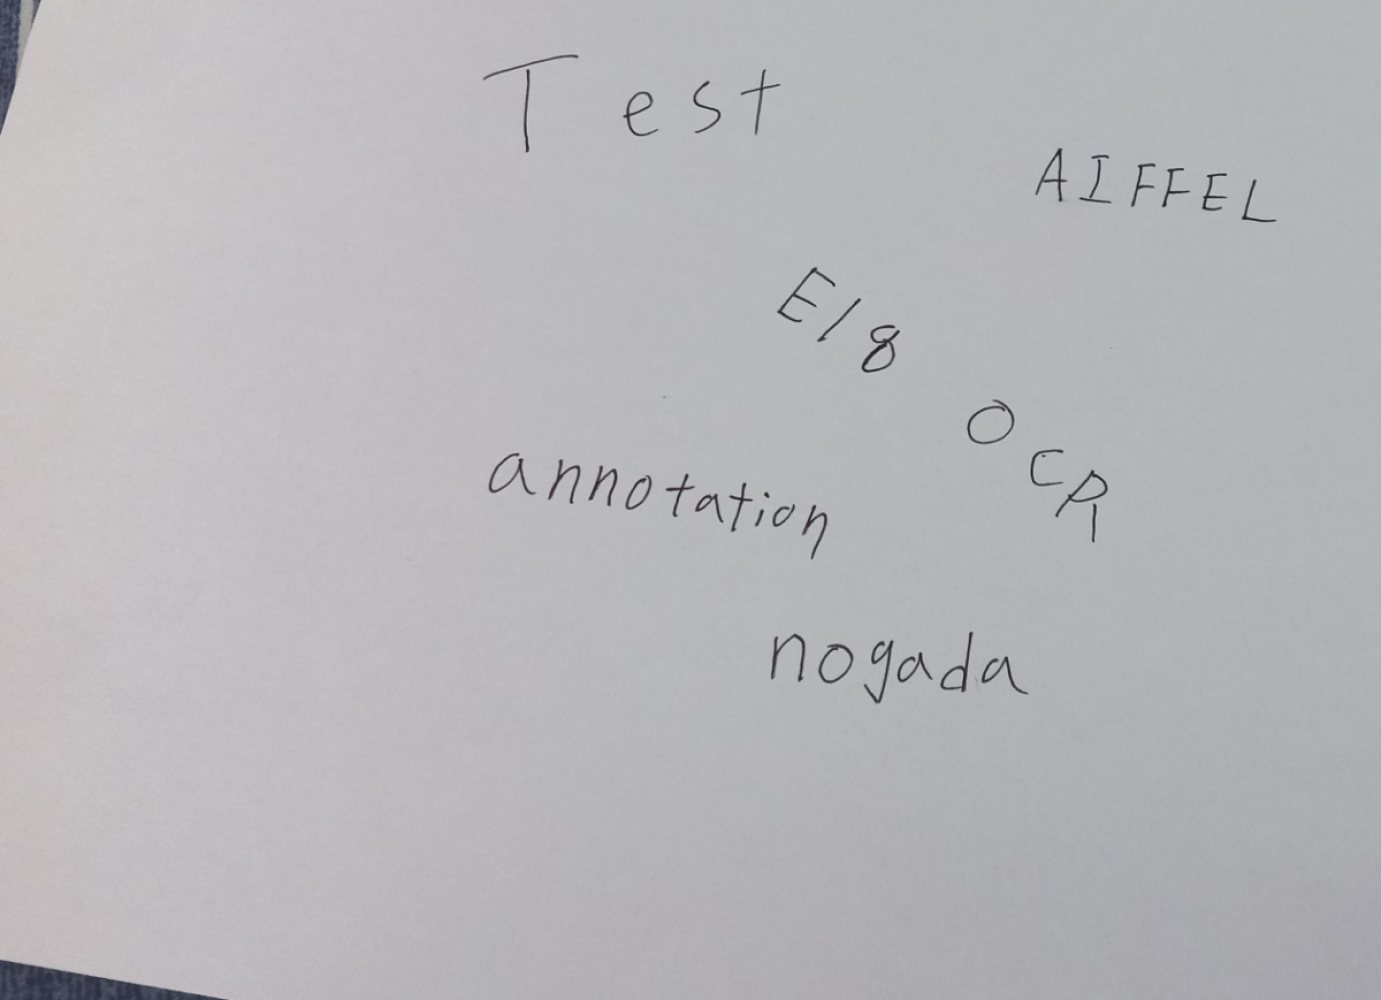 Test
AIFFEL
E/8
OCR
annotation
nogada